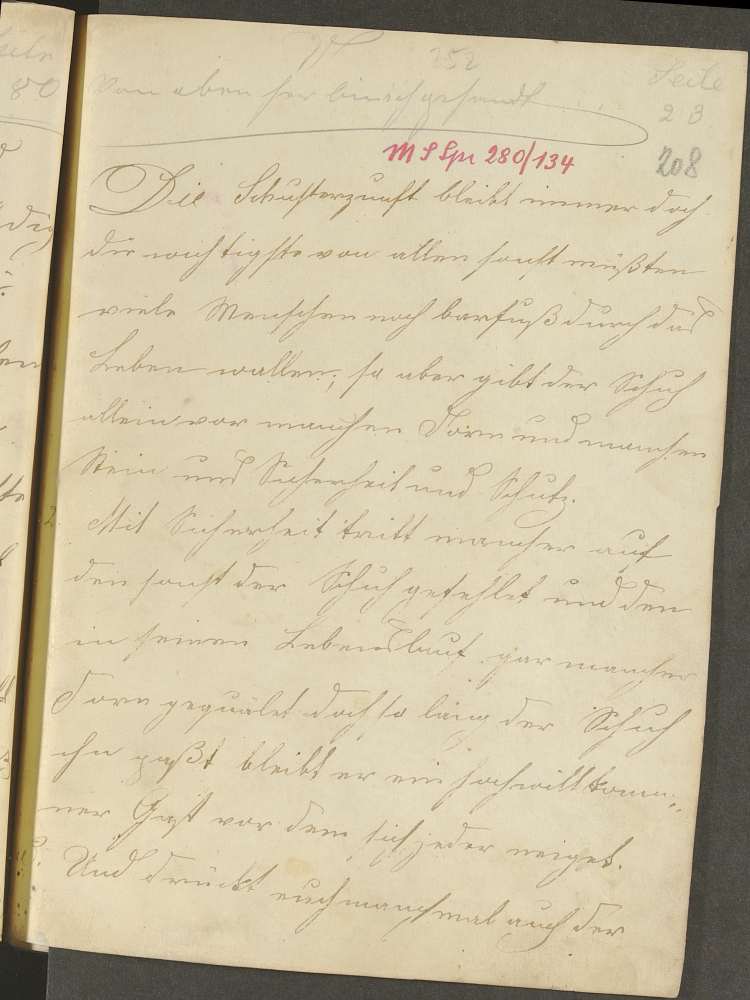 252
Seite
23
von oben her hereingesandt
M S Spr 280/134
208
Die Schusterzunft bleibt immer doch
die wichtigste von allen sonst müßten
viele Menschen noch barfuß durch das
Leben wallen, so aber gibt der Schuh
allein vor manchen Dorn und manchen
Stein uns Sicherheit und Schutz.
2. Mit Sicherheit tritt mancher auf
den sonst der Schuh gefehlet und den
in seinen Lebenslauf gar mancher
Dorn gequälet doch so lang der Schuh
ihn paßt bleibt er ein hochwillkom-
ner Gast vor dem sich jeder neiget.
3. Und drückt euch manchmal auch der